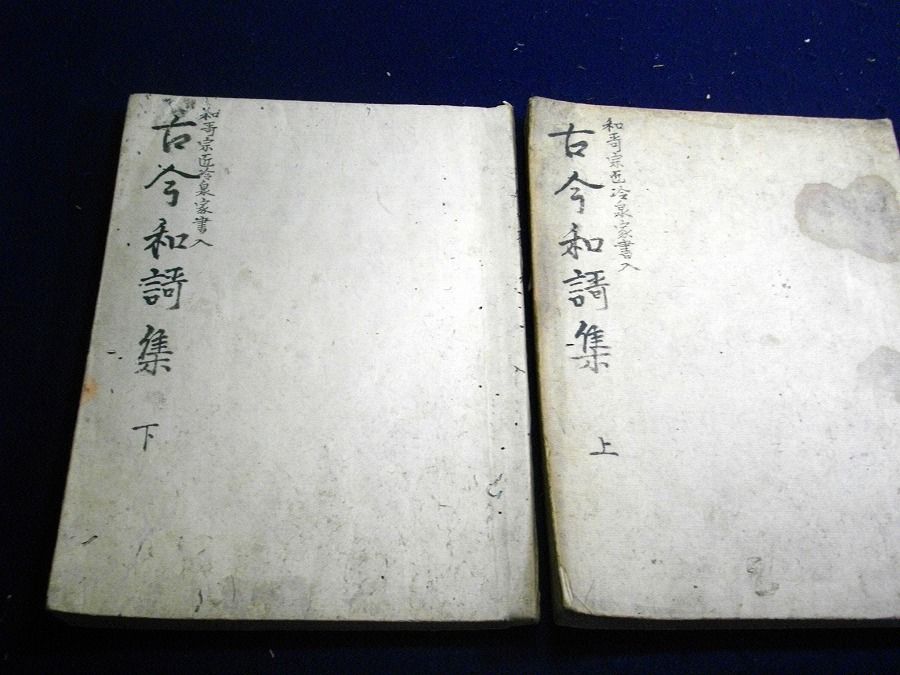 和哥宗匠冷泉家書入
古今和謌集
上
和哥宗匠冷泉家書入
古今和謌集
下